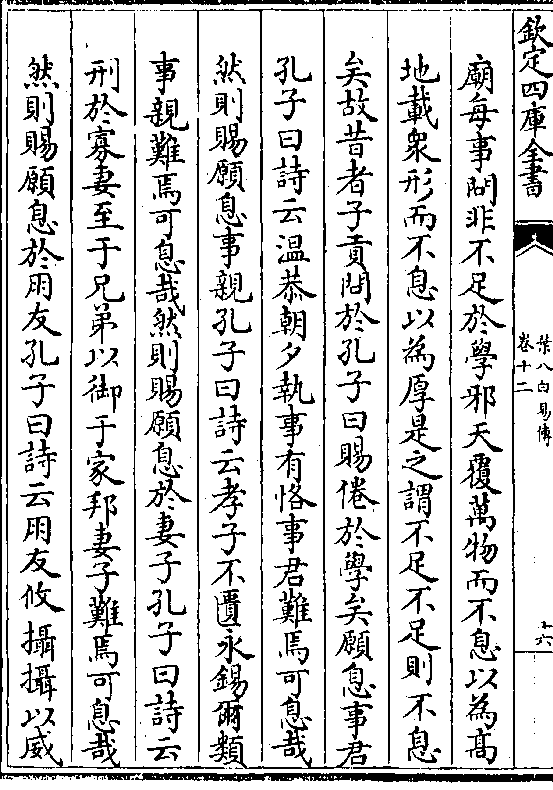 欽定四庫全書
葉八白易傳
卷十二
十六
廟每事問非不足於學邪天覆萬物而不息以為髙
地載衆形而不息以為厚是之謂不足不足則不息
矣故昔者子貢問於孔子曰賜倦於學矣願息事君
孔子曰詩云温恭朝夕執事有恪事君難焉可息哉
然則賜願息事親孔子曰詩云孝子不匱永錫爾類
事親難焉可息哉然則賜願息於妻子孔子曰詩云
刑於寡妻至于兄弟以御于家邦妻子難焉可息哉
然則賜願息於朋友孔子曰詩云朋友攸攝攝以威